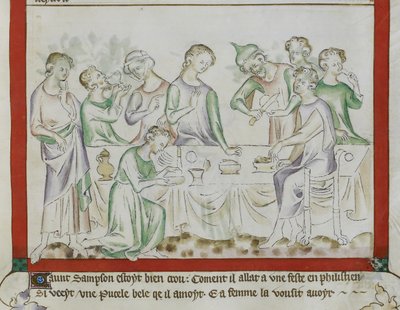 Saunt Sampson estoyt bien crou : Coment il allat a une feste en philistien
Si veyt une pucele bele qe il amoyt · E a femme la vousit avoyr